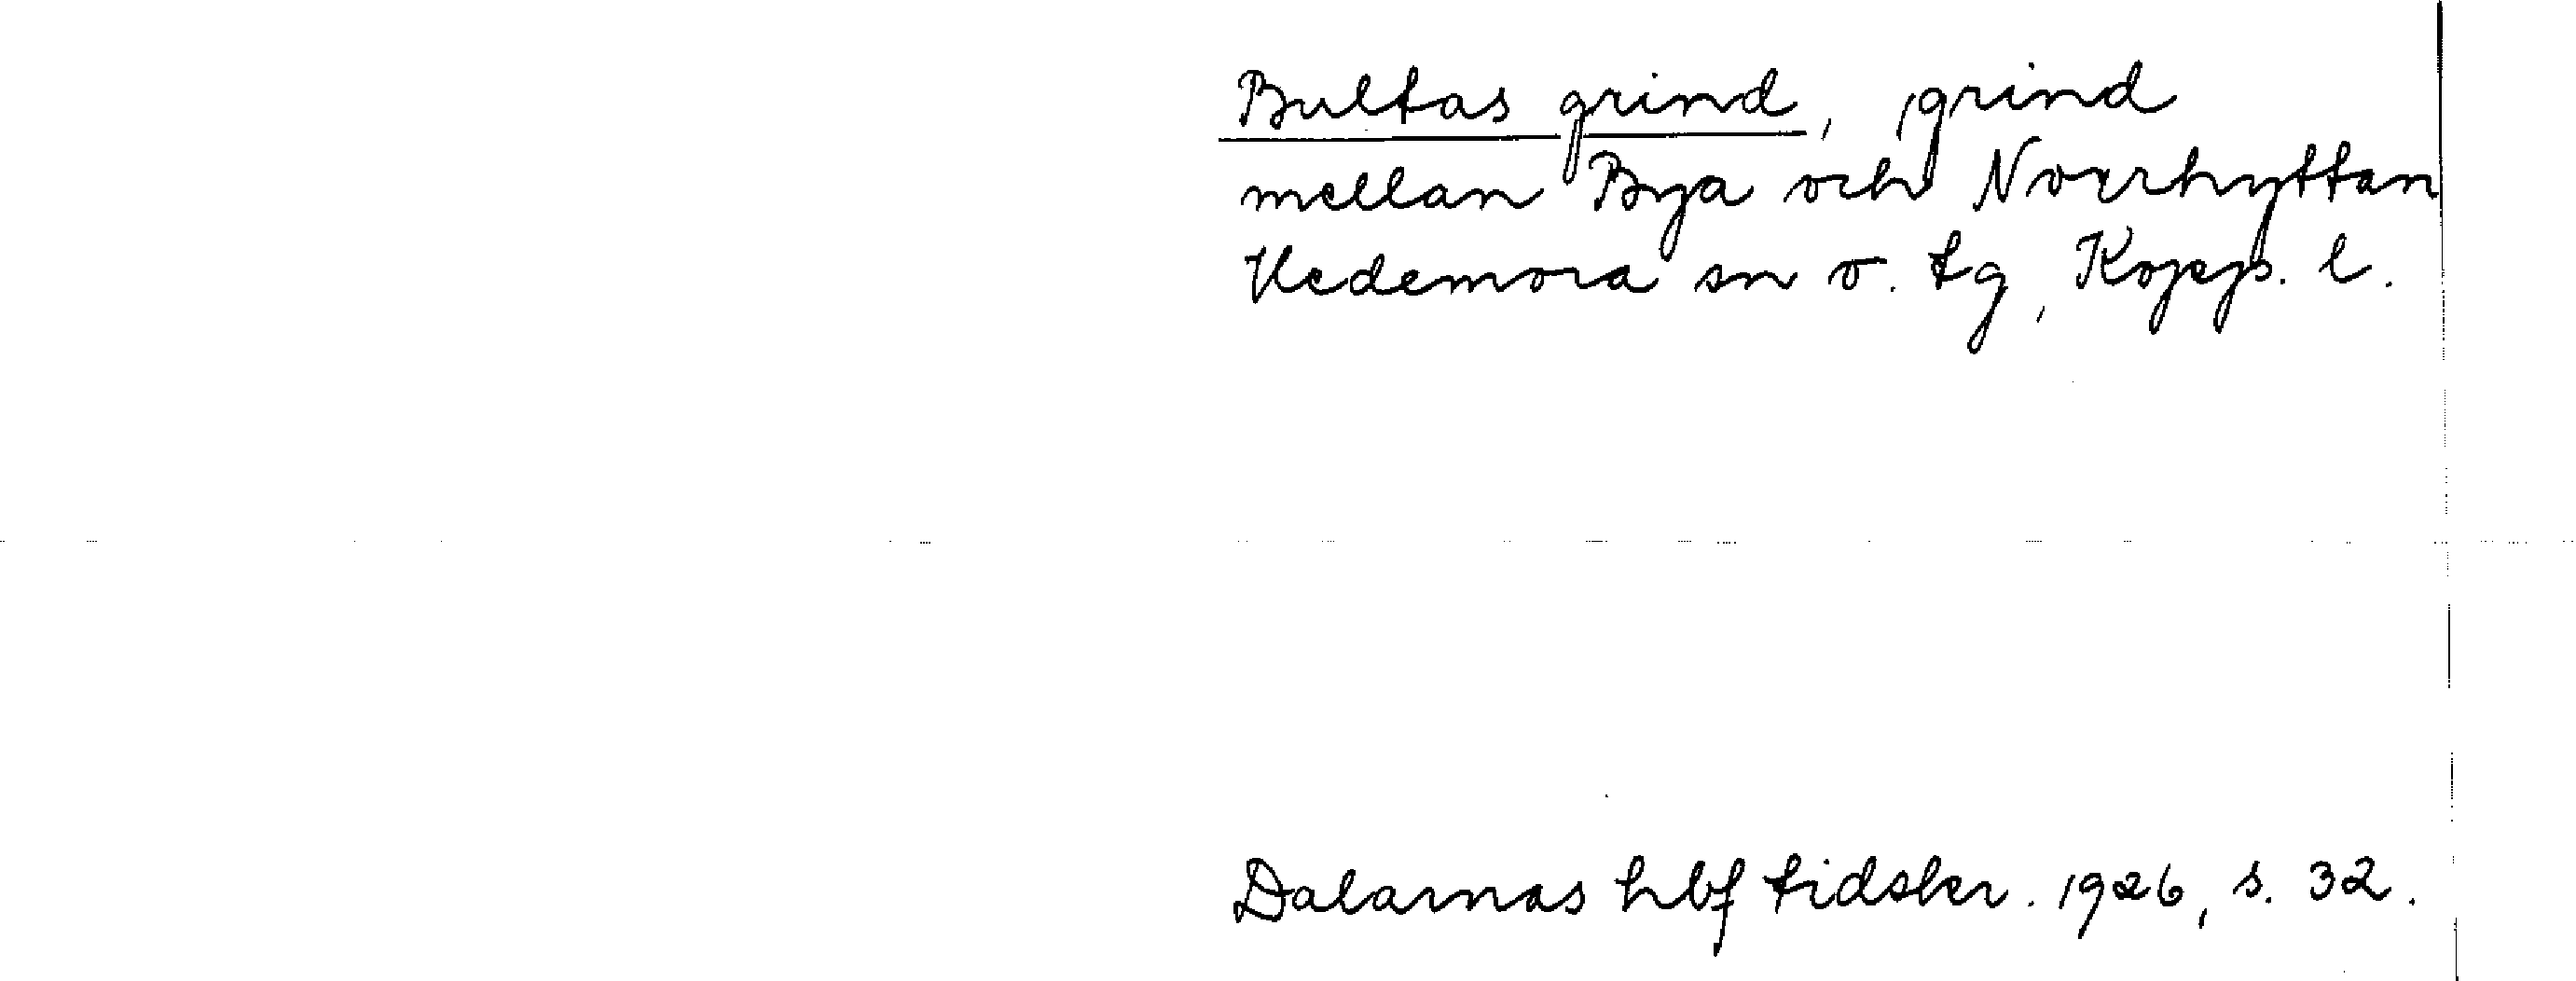 Bultas grind, grind
mellan Bya och Norrhyttan
Hedemora sn o. tg, Kopp. l.
Dalarnas hbf tidskr. 1926, s. 32.